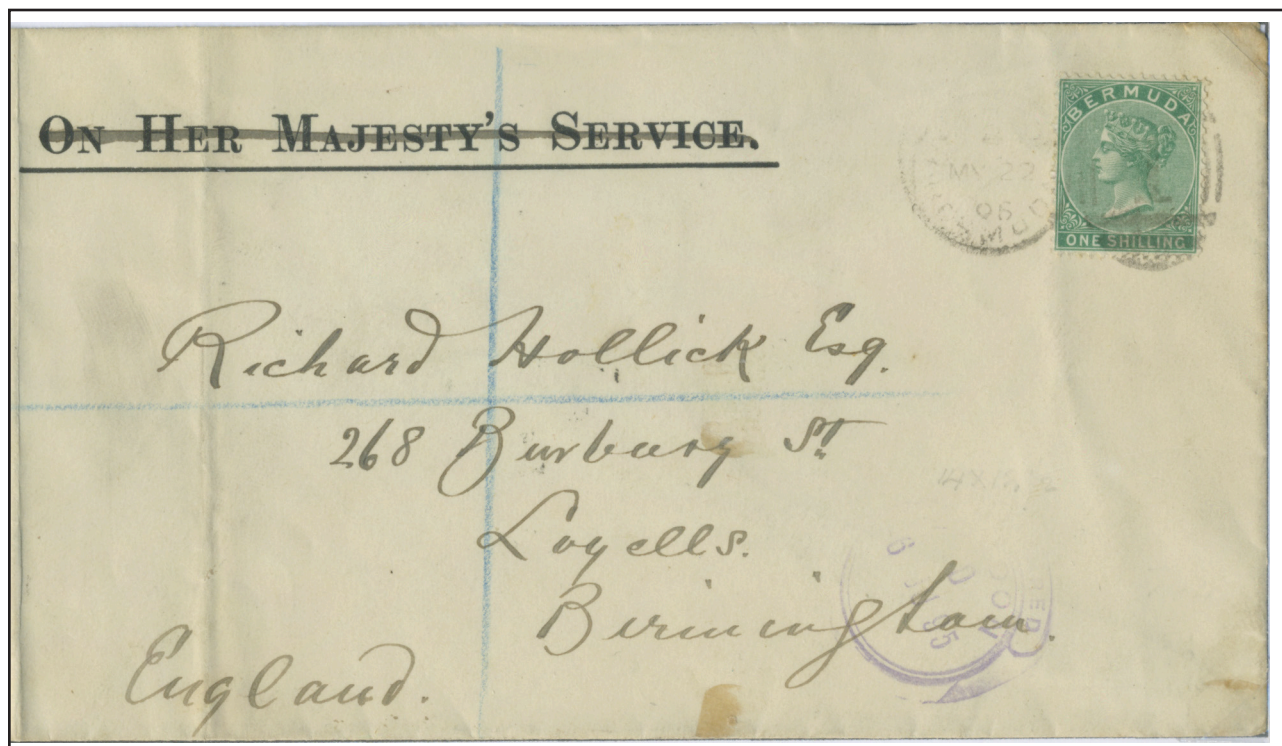 ON HER MAJESTY'S SERVICE.
BERMUDA
ONE SHILLING
MY 22
Richard Hollick Esq.
268 Burbury St
Loyells.
Birmingham.
England.